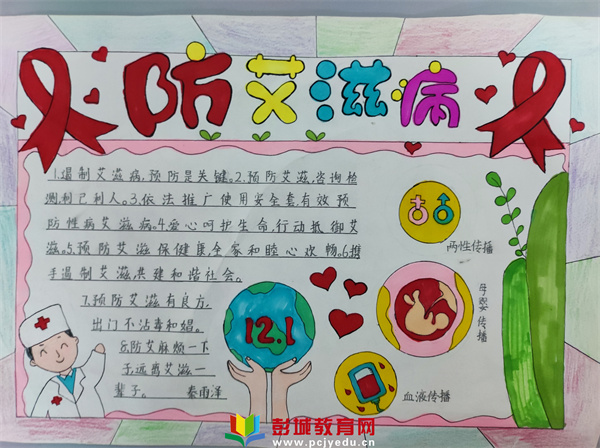 防艾滋病
1.遏制艾滋病,预防是关键。2.预防艾滋,咨询检
测,利己利人。3.依法推广使用安全套有效预
防性病艾滋病。4.爱心呵护生命,行动抵御艾
滋。5.预防艾滋保健康,全家和睦心欢畅。6.携
手遏制艾滋,共建和谐社会。
7.预防艾滋有良方,
出门不沾毒和娼。
8.防艾麻烦一下
子,远离艾滋一
辈子。
秦雨泽
12.1
两性传播
母婴传播
血液传播
彭城教育网
www.pcjyedu.cn